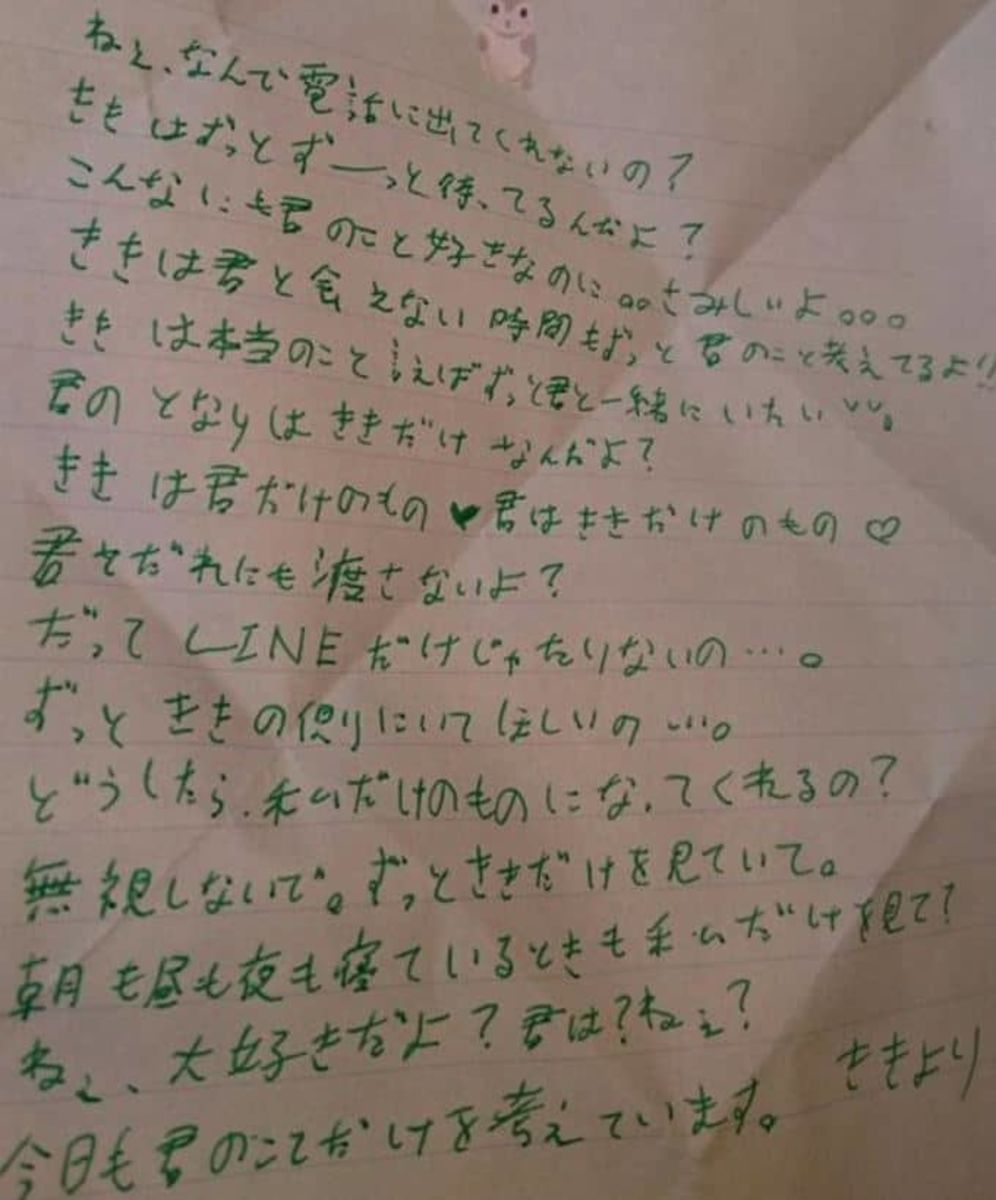 ねぇ、なんで電話に出てくれないの?
ききはずっとずーっと待ってるんだよ?
こんなにも君のこと好きなのに。。さみしいよ。。。
ききは君と会えない時間もずっと君のこと考えてるよ!!
ききは本当のこと言えばずっと君と一緒にいたい
君のとなりはききだけなんだよ?
ききは君だけのもの♥君はききだけのもの♡
君をだれにも渡さないよ?
だってLINEだけじゃたりないの…。
ずっとききの側にいてほしいの…。
どうしたら、私だけのものになってくれるの?
無視しないで。ずっとききだけを見ていて。
朝も昼も夜も寝ているときも私だけを見て?
ねぇ、大好きだよ?君は?ねぇ?
ききより
今日も君のことだけを考えています。